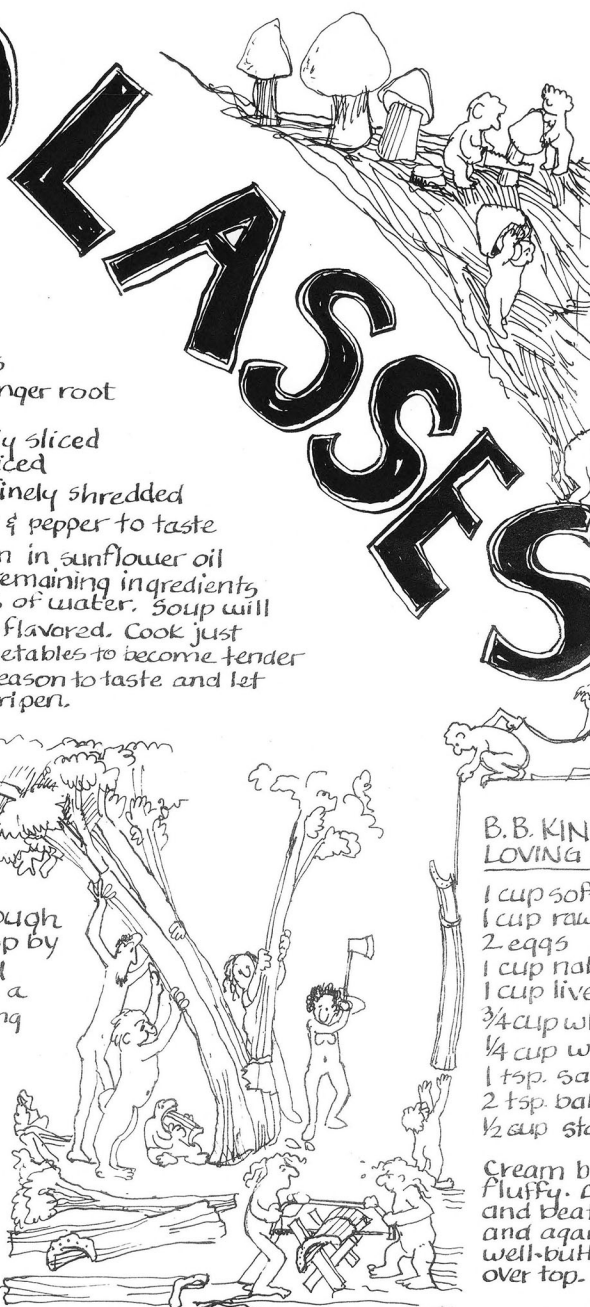 LASSES
s
nger root
ly sliced
iced
inely shredded
& pepper to taste
n in sunflower oil
remaining ingredients
s of water. Soup will
flavored. Cook just
etables to become tender
eason to taste and let
ripen.
ough
op by
d
a
ng
B.B. KIN
LOVING
1 cup sof
1 cup raw
2 eggs
1 cup nat
1 cup live
3/4 cup wh
1/4 cup w
1 tsp. sa
2 tsp. bak
1/2 cup sto
Cream b
fluffy.
and beat
and again
well-butt
over top.